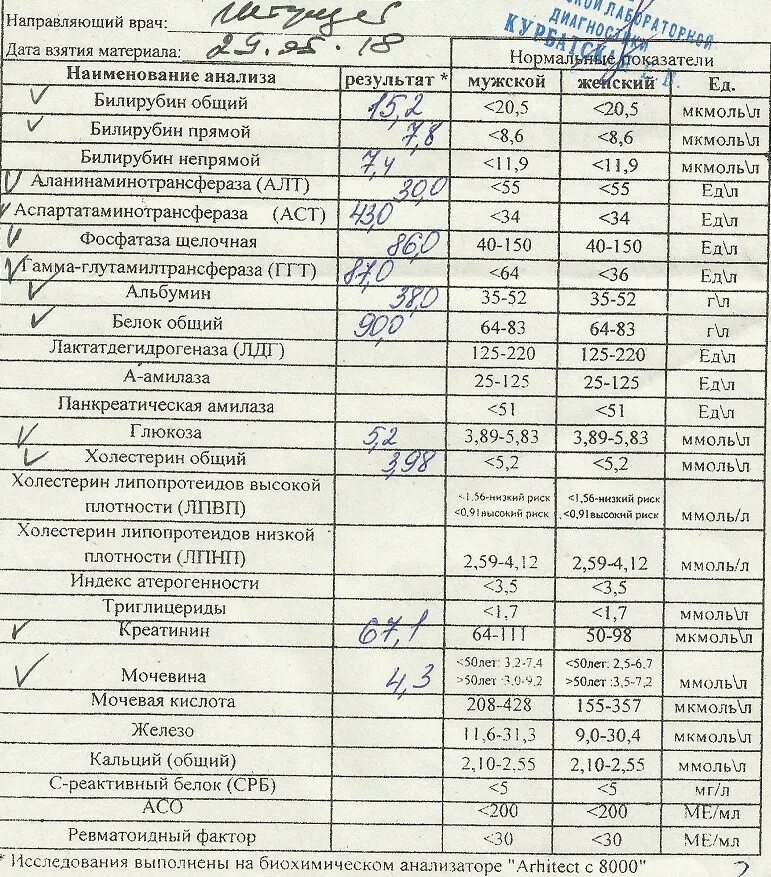 Направляющий врач:
КОЙ ЛАБОРАТОРНОЙ
ДИАГНОСТИКИ
КУРБАТСКАЯ
Дата взятия материала: 29.05.18
Нормальные показатели
Наименование анализа результат * мужской женский Ед.
Билирубин общий 15,2 <20,5 <20,5 мкмоль\л
Билирубин прямой 7,8 <8,6 <8,6 мкмоль\л
Билирубин непрямой 7,4 <11,9 <11,9 мкмоль\л
Аланинаминотрансфераза (АЛТ) 30,0 <55 <55 Ед\л
Аспартатаминотрансфераза (АСТ) 43,0 <34 <34 Ед\л
Фосфатаза щелочная 86,0 40-150 40-150 Ед\л
Гамма-глутамилтрансфераза (ГГТ) 87,0 <64 <36 Ед\л
Альбумин 38,0 35-52 35-52 г\л
Белок общий 90,0 64-83 64-83 г\л
Лактатдегидрогеназа (ЛДГ) 125-220 125-220 Ед\л
А-амилаза 25-125 25-125 Ед\л
Панкреатическая амилаза <51 <51 Ед\л
Глюкоза 5,2 3,89-5,83 3,89-5,83 ммоль\л
Холестерин общий 3,98 <5,2 <5,2 ммоль\л
Холестерин липопротеидов высокой
плотности (ЛПВП) <1,56-низкий риск <1,56-низкий риск ммоль/л
<0,91высокий риск <0,91высокий риск
Холестерин липопротеидов низкой
плотности (ЛПНП) 2,59-4,12 2,59-4,12 ммоль/л
Индекс атерогенности <3,5 <3,5
Триглицериды <1,7 <1,7 ммоль\л
Креатинин 67,1 64-111 50-98 мкмоль\л
<50лет: 3,2-7,4 <50лет: 2,5-6,7
Мочевина 4,3 >50лет :3,0-9,2 >50лет :3,5-7,2 ммоль\л
Мочевая кислота 208-428 155-357 мкмоль\л
Железо 11,6-31,3 9,0-30,4 мкмоль\л
Кальций (общий) 2,10-2,55 2,10-2,55 ммоль\л
С-реактивный белок (СРБ) <5 <5 мг/л
АСО <200 <200 МЕ/мл
Ревматоидный фактор <30 <30 МЕ/мл
* Исследования выполнены на биохимическом анализаторе "Arhitect c 8000"